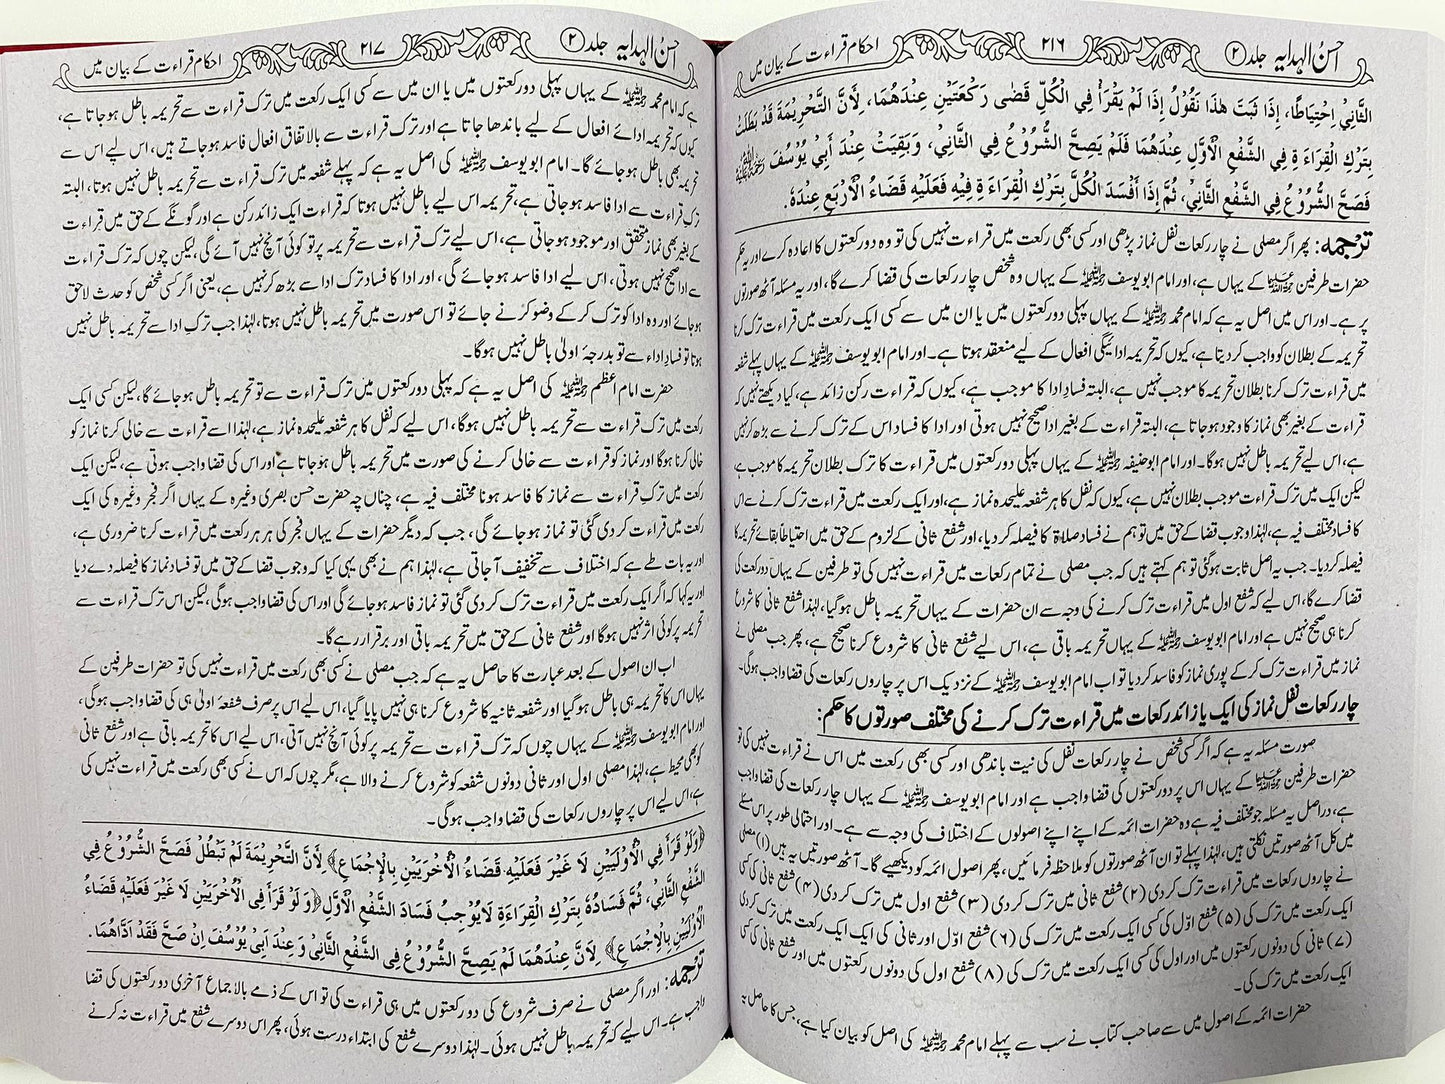 احسن الہدایہ جلد ۲ ۲۱۶ احکام قراءت کے بیان میں
الثَّانِيْ اِحْتِيَاطًا، إِذَا ثَبَتَ هٰذَا نَقُوْلُ إِذَا لَمْ يَقْرَأْ فِي الْكُلِّ قَضٰى رَكْعَتَيْنِ عِنْدَهُمَا، لِأَنَّ التَّحْرِيْمَةَ قَدْ بَطَلَتْ
بِتَرْكِ الْقِرَاءَةِ فِي الشَّفْعِ الْأَوَّلِ عِنْدَهُمَا فَلَمْ يَصِحَّ الشُّرُوْعُ فِي الثَّانِيْ، وَبَقِيَتْ عِنْدَ أَبِيْ يُوْسُفَ رَحِمَهُ اللّٰهُ
فَصَحَّ الشُّرُوْعُ فِي الشَّفْعِ الثَّانِيْ، ثُمَّ إِذَا أَفْسَدَ الْكُلَّ بِتَرْكِ الْقِرَاءَةِ فِيْهِ فَعَلَيْهِ قَضَاءُ الْأَرْبَعِ عِنْدَهٗ.
ترجمہ: پھر اگر مصلی نے چار رکعات نفل نماز پڑھی اور کسی بھی رکعت میں قراءت نہیں کی تو وہ دو رکعتوں کا اعادہ کرے اور یہ حکم
حضرات طرفین کے یہاں ہے، اور امام ابو یوسف کے یہاں وہ شخص چار رکعات کی قضا کرے گا، اور یہ مسئلہ آٹھ صورتوں
پر ہے۔ اور اس میں اصل یہ ہے کہ امام محمد کے یہاں پہلی دو رکعتوں میں یا ان میں سے کسی ایک رکعت میں قراءت ترک کرنا
تحریمہ کے بطلان کو واجب کر دیتا ہے، کیوں کہ تحریمہ ادائیگی افعال کے لیے منعقد ہوتا ہے۔ اور امام ابو یوسف کے یہاں پہلے شفعہ
میں قراءت ترک کرنا بطلان تحریمہ کا موجب نہیں ہے، البتہ فساد ادا کا موجب ہے، کیوں کہ قراءت رکن زائد ہے، کیا دیکھتے نہیں کہ
قراءت کے بغیر بھی نماز کا وجود ہو جاتا ہے، البتہ قراءت کے بغیر ادا صحیح نہیں ہوتی اور ادا کا فساد اس کے ترک کرنے سے بڑھ کر نہیں
ہے، اس لیے تحریمہ باطل نہیں ہوگا۔ اور امام ابو حنیفہ کے یہاں پہلی دو رکعتوں میں قراءت کا ترک بطلان تحریمہ کا موجب ہے،
لیکن ایک میں ترک قراءت موجب بطلان نہیں ہے، کیوں کہ نفل کا ہر شفعہ علیحدہ نماز ہے، اور ایک رکعت میں قراءت ترک کرنے سے اس
کا فساد مختلف فیہ ہے، لہٰذا وجوب قضا کے حق میں تو ہم نے فساد صلاۃ کا فیصلہ کر دیا، اور شفع ثانی کے لزوم کے حق میں احتیاطاً بقائے تحریمہ کا
فیصلہ کر دیا۔ جب یہ اصل ثابت ہوگئی تو ہم کہتے ہیں کہ جب مصلی نے تمام رکعات میں قراءت نہیں کی تو طرفین کے یہاں دو رکعت کی
قضا کرے گا، اس لیے کہ شفع اول میں قراءت ترک کرنے کی وجہ سے ان حضرات کے یہاں تحریمہ باطل ہوگیا، لہٰذا شفع ثانی کا شروع
کرنا ہی صحیح نہیں ہے اور امام ابو یوسف کے یہاں تحریمہ باقی ہے، اس لیے شفع ثانی کا شروع کرنا صحیح ہے، پھر جب مصلی نے
نماز میں قراءت ترک کرکے پوری نماز کو فاسد کر دیا تو اب امام ابو یوسف کے نزدیک اس پر چاروں رکعات کی قضا واجب ہوگی۔
چار رکعات نفل نماز کی ایک یا زائد رکعات میں قراءت ترک کرنے کی مختلف صورتوں کا حکم:
صورت مسئلہ یہ ہے کہ اگر کسی شخص نے چار رکعات نفل کی نیت باندھی اور کسی بھی رکعت میں اس نے قراءت نہیں کی تو
حضرات طرفین کے یہاں اس پر دو رکعتوں کی قضا واجب ہے اور امام ابو یوسف کے یہاں چار رکعات کی قضا واجب
ہے، در اصل یہ مسئلہ جو مختلف فیہ ہے وہ حضرات ائمہ کے اپنے اپنے اصولوں کے اختلاف کی وجہ سے ہے۔ اور احتمالی طور پر اس مسئلے
میں کل آٹھ صورتیں نکلتی ہیں، لہٰذا پہلے تو ان آٹھ صورتوں کو ملاحظہ فرمائیں، پھر اصول ائمہ کو دیکھیے گا۔ آٹھ صورتیں یہ ہیں (۱) مصلی
نے چاروں رکعات میں قراءت ترک کردی (۲) شفع ثانی میں ترک کردی (۳) شفع اول میں ترک کردی (۴) شفع ثانی کی کسی
ایک رکعت میں ترک کی (۵) شفع اوّل کی کسی ایک رکعت میں ترک کی (۶) شفع اوّل اور ثانی کی ایک ایک رکعت میں ترک کردی
(۷) ثانی کی دونوں رکعتوں میں اور اول کی کسی ایک رکعت میں ترک کی (۸) شفع اول کی دونوں رکعتوں میں اور شفع ثانی کی کسی
ایک رکعت میں ترک کی۔
حضرات ائمہ کے اصول میں سے صاحب کتاب نے سب سے پہلے امام محمد کی اصل کو بیان کیا ہے، جس کا حاصل یہ
احسن الہدایہ جلد ۲ ۲۱۷ احکام قراءت کے بیان میں
ہے کہ امام محمد کے یہاں پہلی دو رکعتوں میں یا ان میں سے کسی ایک رکعت میں ترک قراءت سے تحریمہ باطل ہو جاتا ہے،
کیوں کہ تحریمہ ادائے افعال کے لیے باندھا جاتا ہے اور ترک قراءت سے بالاتفاق افعال فاسد ہو جاتے ہیں، اس لیے اس سے
تحریمہ بھی باطل ہو جائے گا۔ امام ابو یوسف کی اصل یہ ہے کہ پہلے شفعہ میں ترک قراءت سے تحریمہ باطل نہیں ہوتا، البتہ
ترک قراءت سے ادا فاسد ہو جاتی ہے، تحریمہ اس لیے باطل نہیں ہوتا کہ قراءت ایک زائد رکن ہے اور گونگے کے حق میں قراءت
کے بغیر بھی نماز متحقق اور موجود ہو جاتی ہے، اس لیے ترک قراءت سے تحریمہ پر تو کوئی آنچ نہیں آئے گی، لیکن چوں کہ ترک قراءت
سے ادا صحیح نہیں ہوتی، اس لیے ادا فاسد ہو جائے گی، اور ادا کا فساد ترک ادا سے بڑھ کر نہیں ہے، یعنی اگر کسی شخص کو حدث لاحق
ہو جائے اور وہ ادا کو ترک کرکے وضو کرنے جائے تو اس صورت میں تحریمہ باطل نہیں ہوتا، لہٰذا جب ترک ادا سے تحریمہ باطل نہیں
ہوتا تو فساد اداء سے تو بدرجۂ اولیٰ باطل نہیں ہوگا۔
حضرت امام اعظم کی اصل یہ ہے کہ پہلی دو رکعتوں میں ترک قراءت سے تو تحریمہ باطل ہو جائے گا، لیکن کسی ایک
رکعت میں ترک قراءت سے تحریمہ باطل نہیں ہوگا، اس لیے کہ نفل کا ہر شفعہ علیحدہ نماز ہے، لہٰذا اسے قراءت سے خالی کرنا نماز کو
خالی کرنا ہوگا اور نماز کو قراءت سے خالی کرنے کی صورت میں تحریمہ باطل ہو جاتا ہے اور اس کی قضا واجب ہوتی ہے، لیکن ایک
رکعت میں ترک قراءت سے نماز کا فاسد ہونا مختلف فیہ ہے، چناں چہ حضرت حسن بصری وغیرہ کے یہاں اگر فجر وغیرہ کی ایک
رکعت میں قراءت کردی گئی تو نماز ہو جائے گی، جب کہ دیگر حضرات کے یہاں فجر کی ہر ہر رکعت میں قراءت کرنا ضروری ہے،
اور یہ بات طے ہے کہ اختلاف سے تخفیف آجاتی ہے، لہٰذا ہم نے بھی یہی کیا کہ وجوب قضا کے حق میں تو فساد نماز کا فیصلہ دے دیا
اور یہ کہا کہ اگر ایک رکعت میں قراءت ترک کردی گئی تو نماز فاسد ہو جائے گی اور اس کی قضا واجب ہوگی، لیکن اس ترک قراءت سے
تحریمہ پر کوئی اثر نہیں ہوگا اور شفع ثانی کے حق میں تحریمہ باقی اور برقرار رہے گا۔
اب ان اصول کے بعد عبارت کا حاصل یہ ہے کہ جب مصلی نے کسی بھی رکعت میں قراءت نہیں کی تو حضرات طرفین کے
یہاں اس کا تحریمہ ہی باطل ہوگیا اور شفعہ ثانیہ کا شروع کرنا ہی نہیں پایا گیا، اس لیے اس پر صرف شفعۂ اولیٰ ہی کی قضا واجب ہوگی،
اور امام ابو یوسف کے یہاں چوں کہ ترک قراءت سے تحریمہ پر کوئی آنچ نہیں آتی، اس لیے اس کا تحریمہ باقی ہے اور شفع ثانی
کو بھی محیط ہے، لہٰذا مصلی اول اور ثانی دونوں شفعہ کو شروع کرنے والا ہے، مگر چوں کہ اس نے کسی بھی رکعت میں قراءت نہیں کی
ہے، اس لیے اس پر چاروں رکعات کی قضا واجب ہوگی۔
﴿وَلَوْ قَرَأَ فِي الْأُوْلَيَيْنِ لَا غَيْرَ فَعَلَيْهِ قَضَاءُ الْأُخْرَيَيْنِ بِالْإِجْمَاعِ﴾ لِأَنَّ التَّحْرِيْمَةَ لَمْ تَبْطُلْ فَصَحَّ الشُّرُوْعُ فِي
الشَّفْعِ الثَّانِيْ، ثُمَّ فَسَادُهٗ بِتَرْكِ الْقِرَاءَةِ لَايُوْجِبُ فَسَادَ الشَّفْعِ الْأَوَّلِ ﴿وَلَوْ قَرَأَ فِي الْأُخْرَيَيْنِ لَا غَيْرَ فَعَلَيْهِ قَضَاءُ
الْأُوْلَيَيْنِ بِالْإِجْمَاعِ﴾ لِأَنَّ عِنْدَهُمَا لَمْ يَصِحَّ الشُّرُوْعُ فِي الشَّفْعِ الثَّانِيْ وَعِنْدَ أَبِيْ يُوْسُفَ اِنْ صَحَّ فَقَدْ اَدَّاهُمَا.
ترجمہ: اور اگر مصلی نے صرف شروع کی دو رکعتوں میں ہی قراءت کی تو اس کے ذمے بالاجماع آخری دو رکعتوں کی قضا
واجب ہے۔ اس لیے کہ تحریمہ باطل نہیں ہوئی۔ لہٰذا دوسرے شفع کی ابتداء درست ہوئی، پھر اس دوسرے شفع میں قراءت نہ کرنے